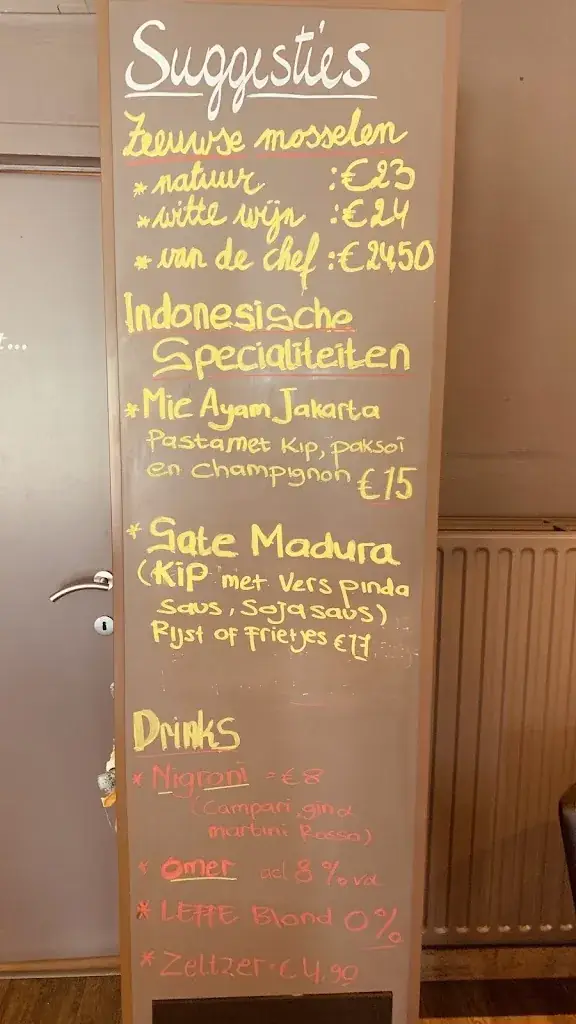 Suggesties
Zeeuwse mosselen
* natuur :€23
* witte wijn :€24
* van de chef :€24,50
Indonesische
Specialiteiten
* Mie Ayam Jakarta
Pasta met Kip, paksoi
en Champignon €15
* Sate Madura
(KiP met Vers pinda
saus, Sojasaus)
Rijst of Frietjes €17
Drinks
* Nigroni = €8
(Campari, gin &
martini Rosso)
* Omer acl 8% vol
* LEFFE Blond 0%
* Zeltzer = €4,90